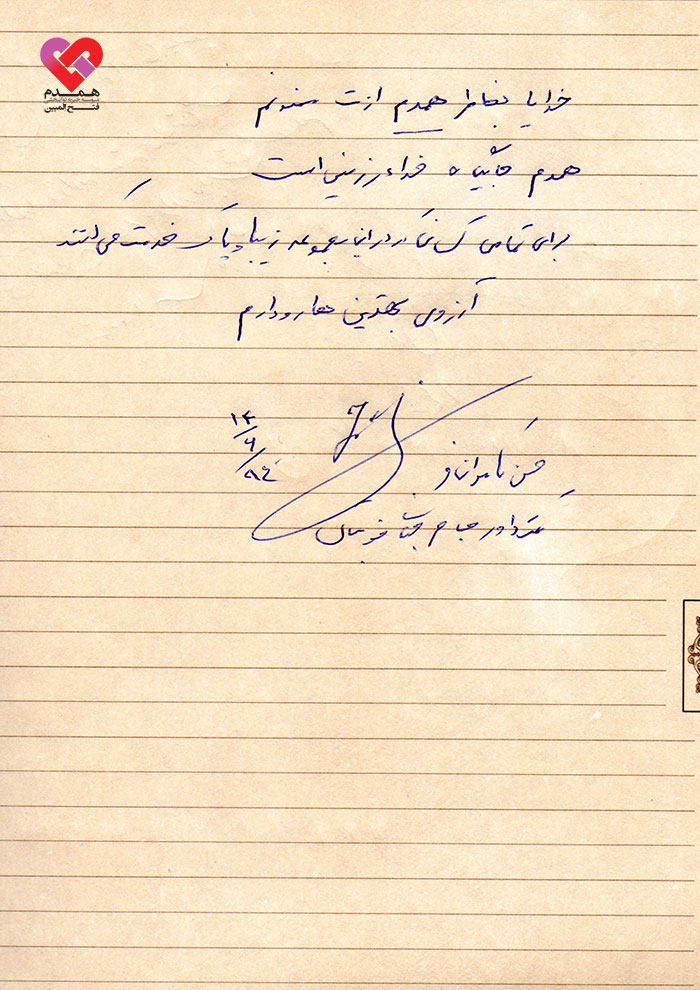 همدم
موسسه خیریه توانبخشی
فتح المبین
خدایا بخاطر همدم ازت ممنونم
همدم جائیکه خدا رو زمینی است
برای تمامی کسانیکه در این مجموعه زیبا و پاک خدمت می کنند
آرزوی بهترین ها رو دارم
حسن کامرانی فر
داور جام جهانی فوتبال
۱۴/۶/۹۴